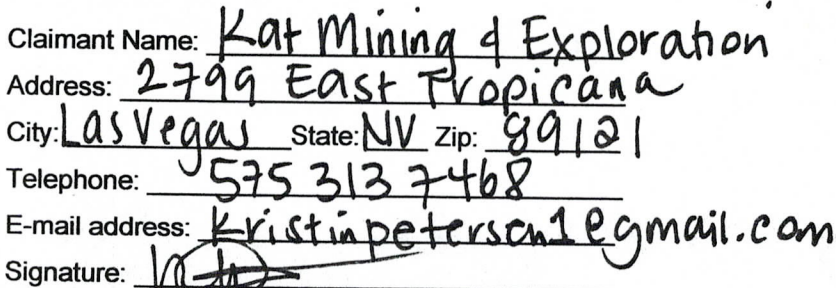 Claimant Name: Kat Mining & Exploration
Address: 2799 East Tropicana
City: Las Vegas State: NV Zip: 89121
Telephone: 575 313 7468
E-mail address: kristinpeterson1@gmail.com
Signature: